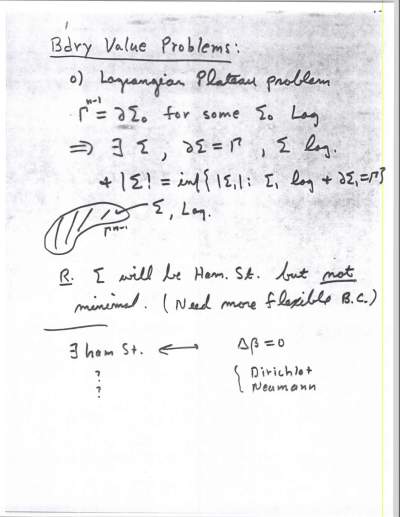 Bdry Value Problems:
0) Lagrangian Plateau problem
Γⁿ⁻¹ = ∂Σ₀ for some Σ₀ Lag
⇒ ∃ Σ, ∂Σ = Γ, Σ lag.
+ |Σ| = inf{|Σ₁| : Σ₁ lag + ∂Σ₁ = Γ}
Σ, Lag.
Γⁿ⁻¹
R. Σ will be Ham. St. but not
minimal. (Need more flexible B.C.)
∃ ham St. ⟷ Δβ = 0
? { Dirichlet
? Neumann